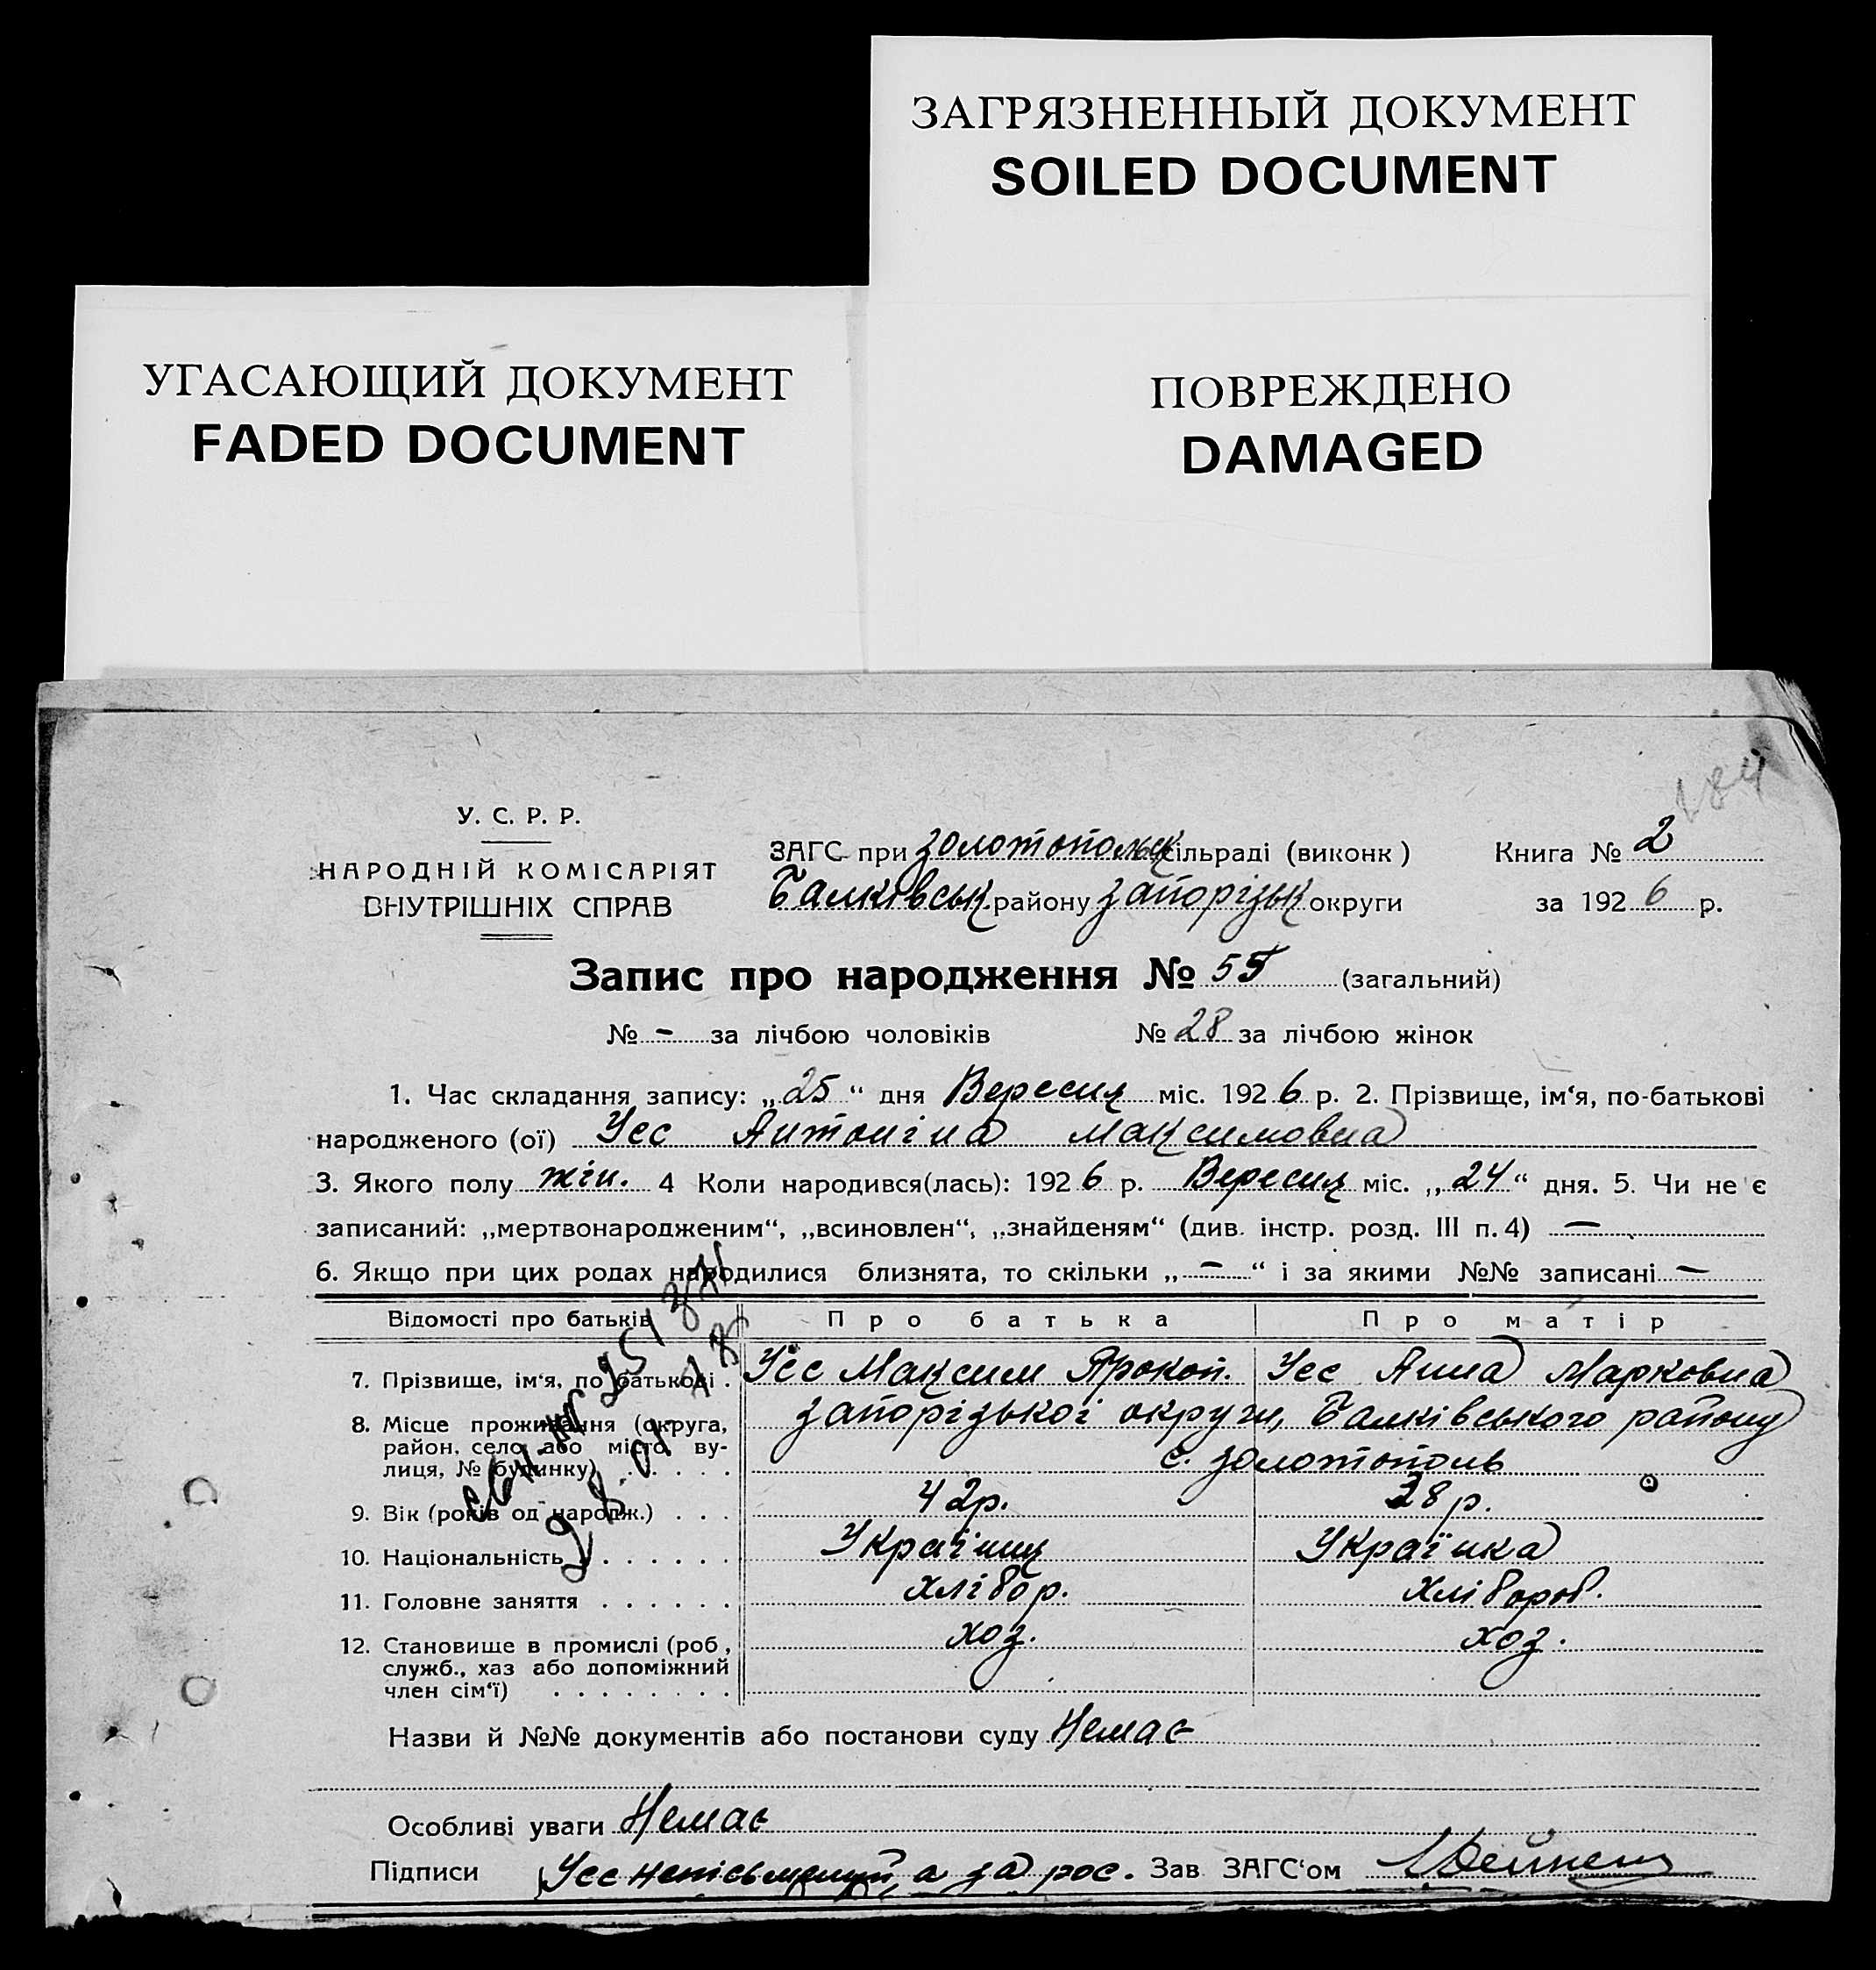 ЗАГРЯЗНЕННЫЙ ДОКУМЕНТ
SOILED DOCUMENT
УГАСАЮЩИЙ ДОКУМЕНТ
FADED DOCUMENT
ПОВРЕЖДЕНО
DAMAGED
184
У. С. Р. Р.
НАРОДНІЙ КОМІСАРІЯТ
ВНУТРІШНІХ СПРАВ
ЗАГС при Золотопольськ сільраді (виконк ) Книга № 2
Балківськ. району Запорізьк округи за 1926 р.
Запис про народження № 55 (загальний)
№ - за лічбою чоловіків № 28 за лічбою жінок
1. Час складання запису: „25“ дня Вересня міс. 1926 р. 2. Прізвище, ім‘я, по-батькові
народженого (ої) Усс Антоніна Максимовна
3. Якого полу жін. 4 Коли народився(лась): 1926 р. Вересня міс. „24“ дня. 5. Чи не є
записаний: „мертвонародженим“, „всиновлен“, „знайденям“ (див. інстр. розд. III п. 4) —
6. Якщо при цих родах народилися близнята, то скільки „-“ і за якими №№ записані —
Відомості про батьків Про батька Про матір
7. Прізвище, ім‘я, по батькові . Усс Максим Прокоп. Усс Анна Марковна
8. Місце проживання (округа, район, село або місто, вулиця, № будинку) . . . . Запорізької округи, Балківського району
с. Золотополь
9. Вік (років од народж.) . . . 42р. 28р.
10. Національність . . . . . . Українця Українка
11. Головне заняття . . . . . . хлібор. хлібороб.
12. Становище в промислі (роб , служб., хаз або допоміжний член сім‘ї) . . . . . . . . хоз. хоз.
Назви й №№ документів або постанови суду Немає
Особливі уваги Немає
Підписи Усс за рос. Зав ЗАГС‘ом